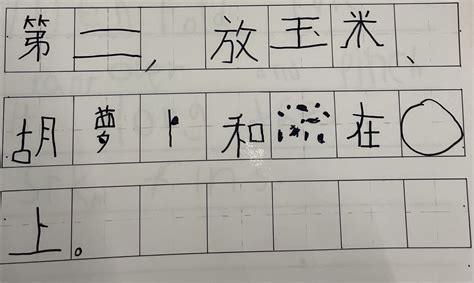 第三，放玉米、
胡萝卜和在○
上。